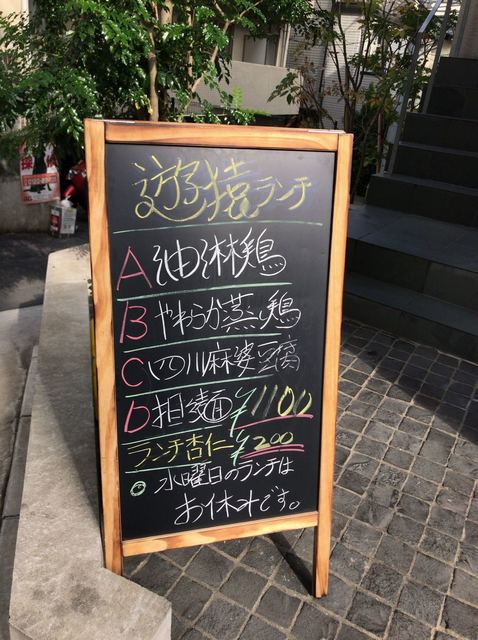 遊猿ランチ
A 油淋鶏
B やわらか蒸し鶏
C 四川麻婆豆腐
D 担麺 ¥1100
ランチ杏仁 ¥200
水曜日のランチは
お休みです。